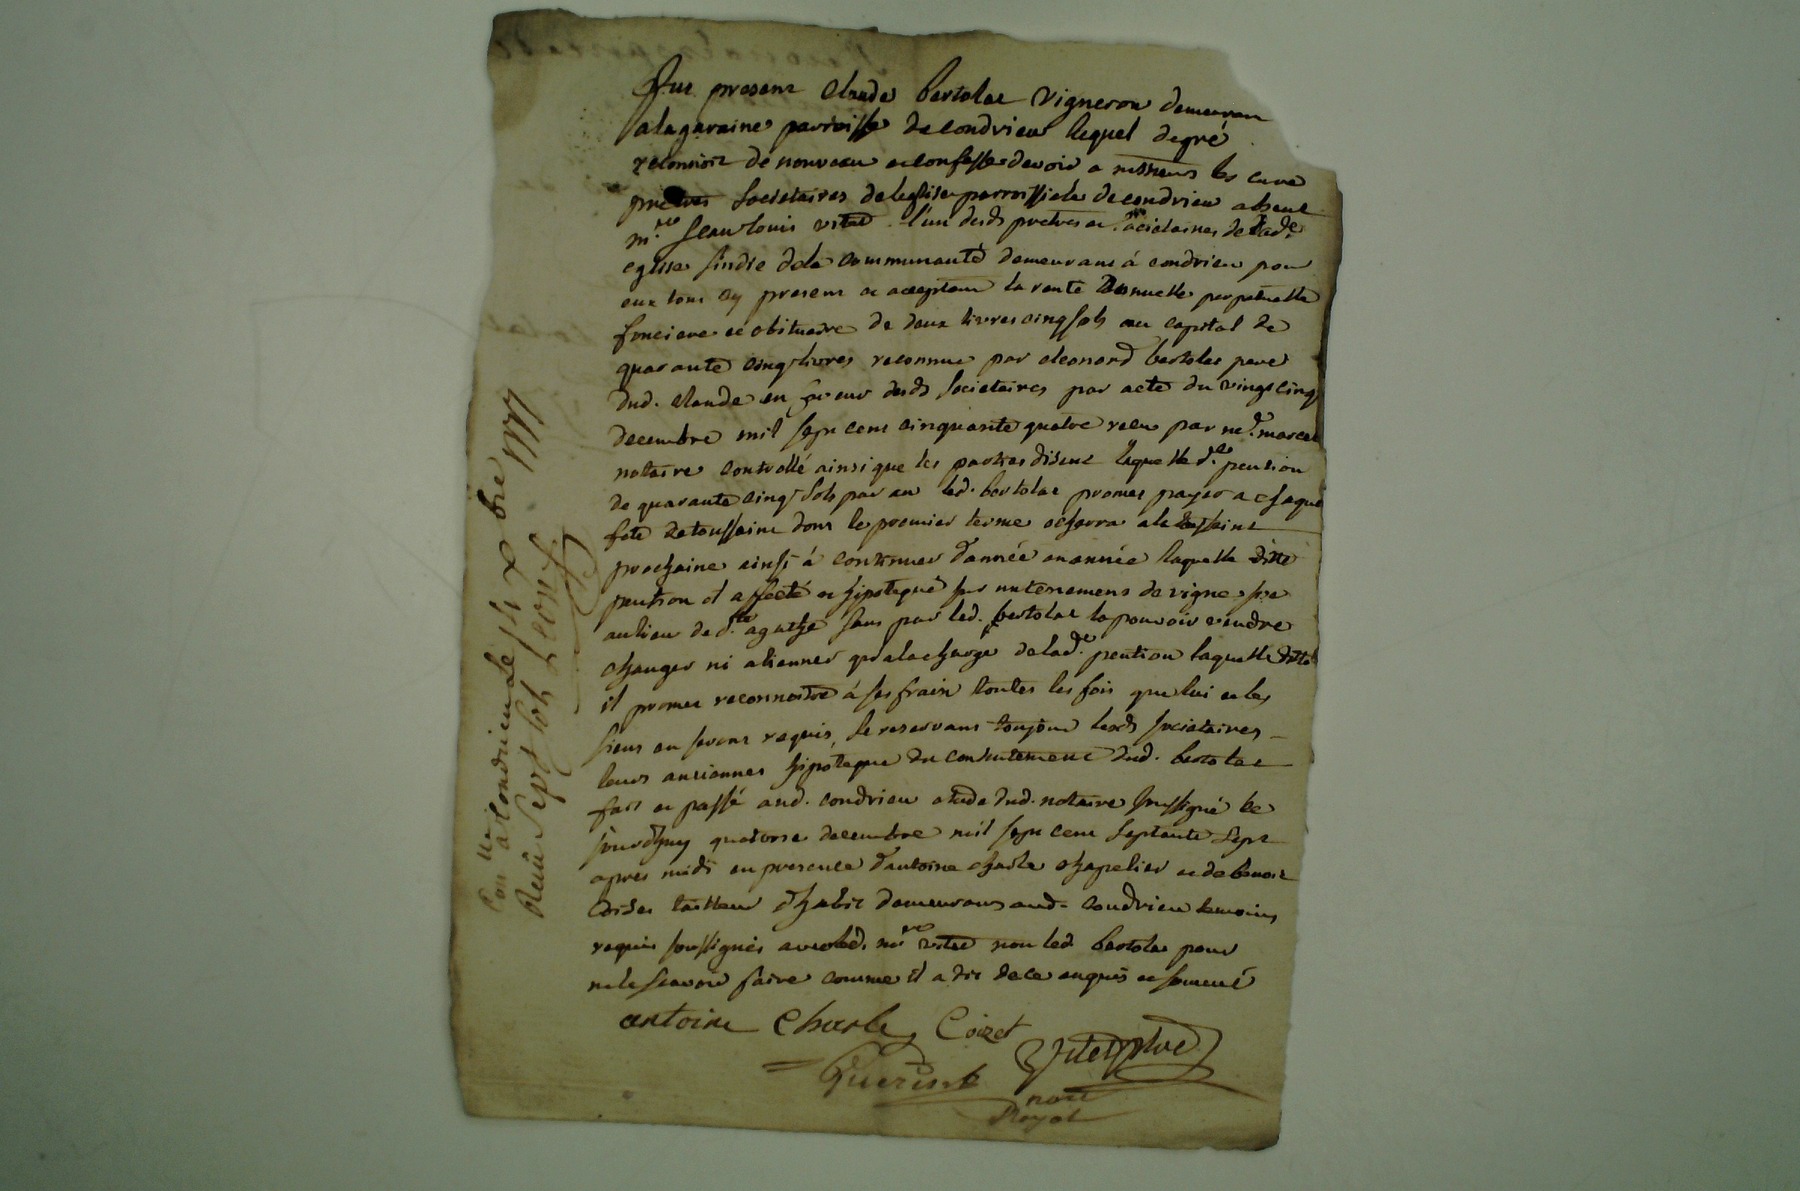 Fut present Claude bertolat vigneron demeuran
a la garaine parroisse de condrieu lequel de gré
reconnoit de nouveau et confesse devoir a messieurs les curé
pretres societaires de leglise parroissiale de condrieu absent
m.re Jean louis vital l'un desd pretres et societaires de lad.e
eglise sindic de la communauté demeurans á condrieu pour
eux tous cy present et acceptant la rente annuelle perpetuelle
fonciere et obituaire de deux livres cinq sols au capital de
quarante cinq livres reconnue par leonard bertolat pere
dud. Claude en faveur desd societaires par acte du vingt cinq
decembre mil sept cent cinquante quatre recu par me. marcel
notaire controllé ainsi que les parties disent laquelle d.e pention
de quarante cinq sols par an led. bertolat promet payer a chaque
fete de toussaint dont le premier terme echerra a la toussaint
prochaine ainsi á continuer d'année en année laquelle ditte
pention est affecté et hipotequé sur un tenement de vigne sise
au lieu de s.te agathe sans par led. bertolat la pouvoir vendre
changer ni alienner qu'a la charge de lad.e pention laquelle ditte
il promet reconnoitre á ses frais toutes les fois que lui et les
siens en seront requis, se reservans toujour lesd societaires
leurs anciennes hipoteque du consentement dud. bertolat
fait et passé aud. condrieu etude dud. notaire soussigné le
jourd'huy quatorze decembre mil sept cent septante sept
apres midi en presence d'antoine charle chapelier et de benoit
Coizet tailleur d'habit demeurans aud. Condrieu temoins
requis soussignés avec led. mre vital non led. bertolat pour
ne le scavoir faire comme il a dit de ce enquis et sommé
antoine Charle Coizet
vital ptre
Guerin
nore
Royal
Con.llé à Condrieu le 24 xbre 1777
Reçu Sept sols